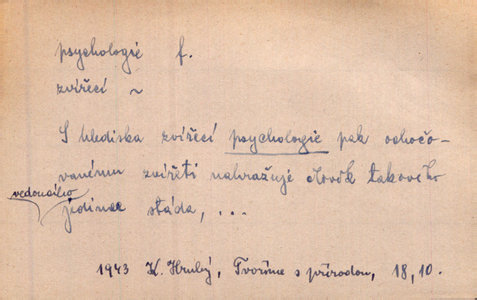 psychologie f.
zvířecí ~
S hlediska zvířecí psychologie pak ochočo-
vanému zvířeti nahražuje člověk takového
vedoucího
jedince stáda, ...
1943 K. Hrubý, Tvoříme s přírodou, 18, 10.